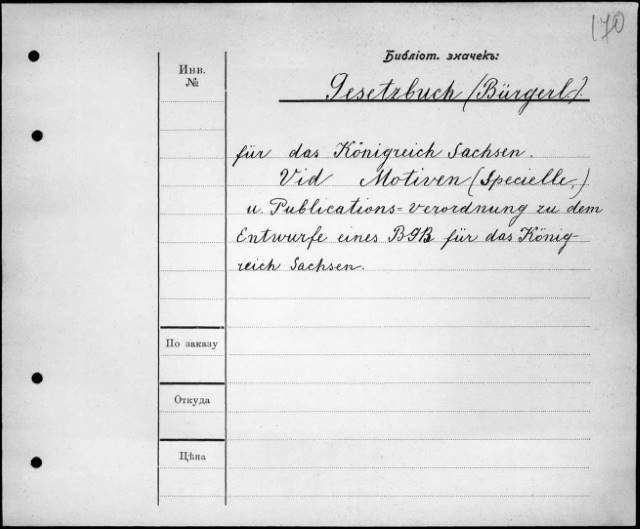 170
Библіот. значекъ:
Инв.
№
Gesetzbuch (Bürgerl.)
für das Königreich Sachsen.
Vid Motiven (Specielle,)
u. Publications=verordnung zu dem
Entwurfe eines BGB für das König-
reich Sachsen.
По заказу
Откуда
Цѣна